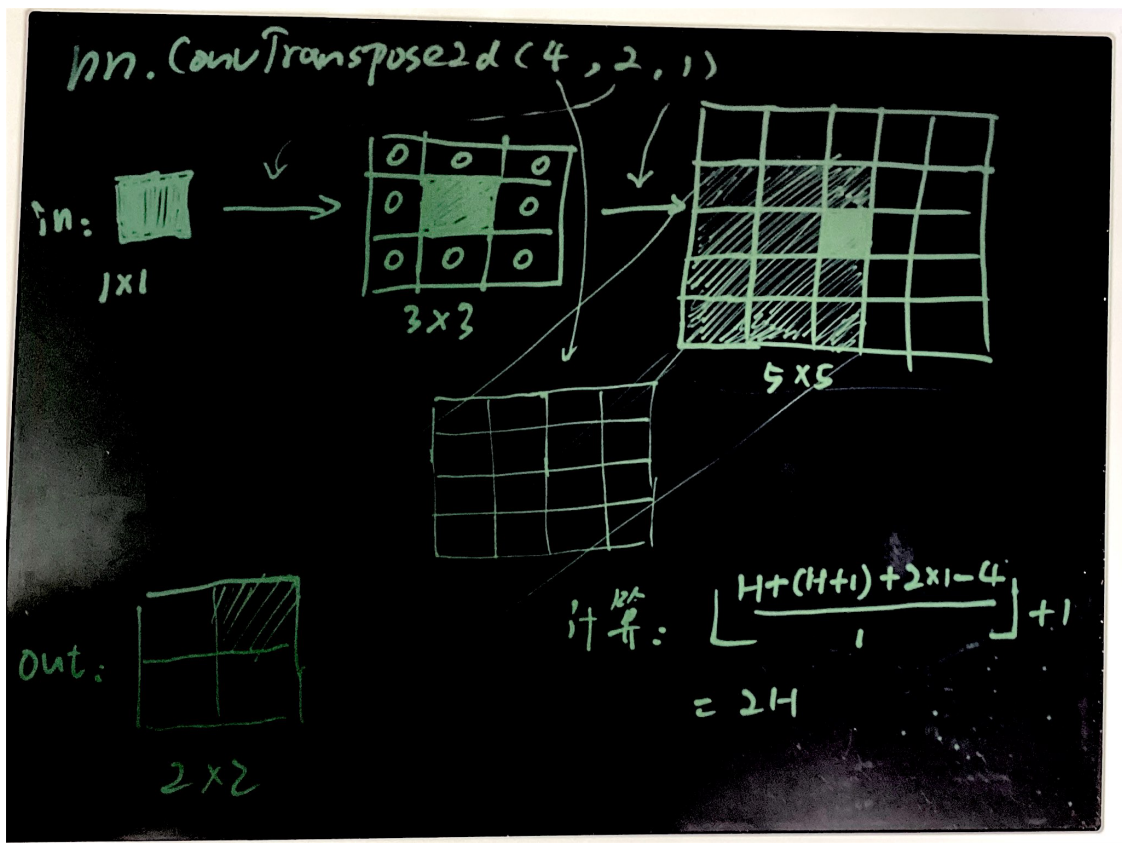 nn.ConvTranspose2d(4,2,1)
in:
1×1
0 0 0
0 0
0 0 0
3×3
5×5
out:
2×2
计算: ⌊(H+(H+1)+2×1-4)/1⌋+1
= 2H